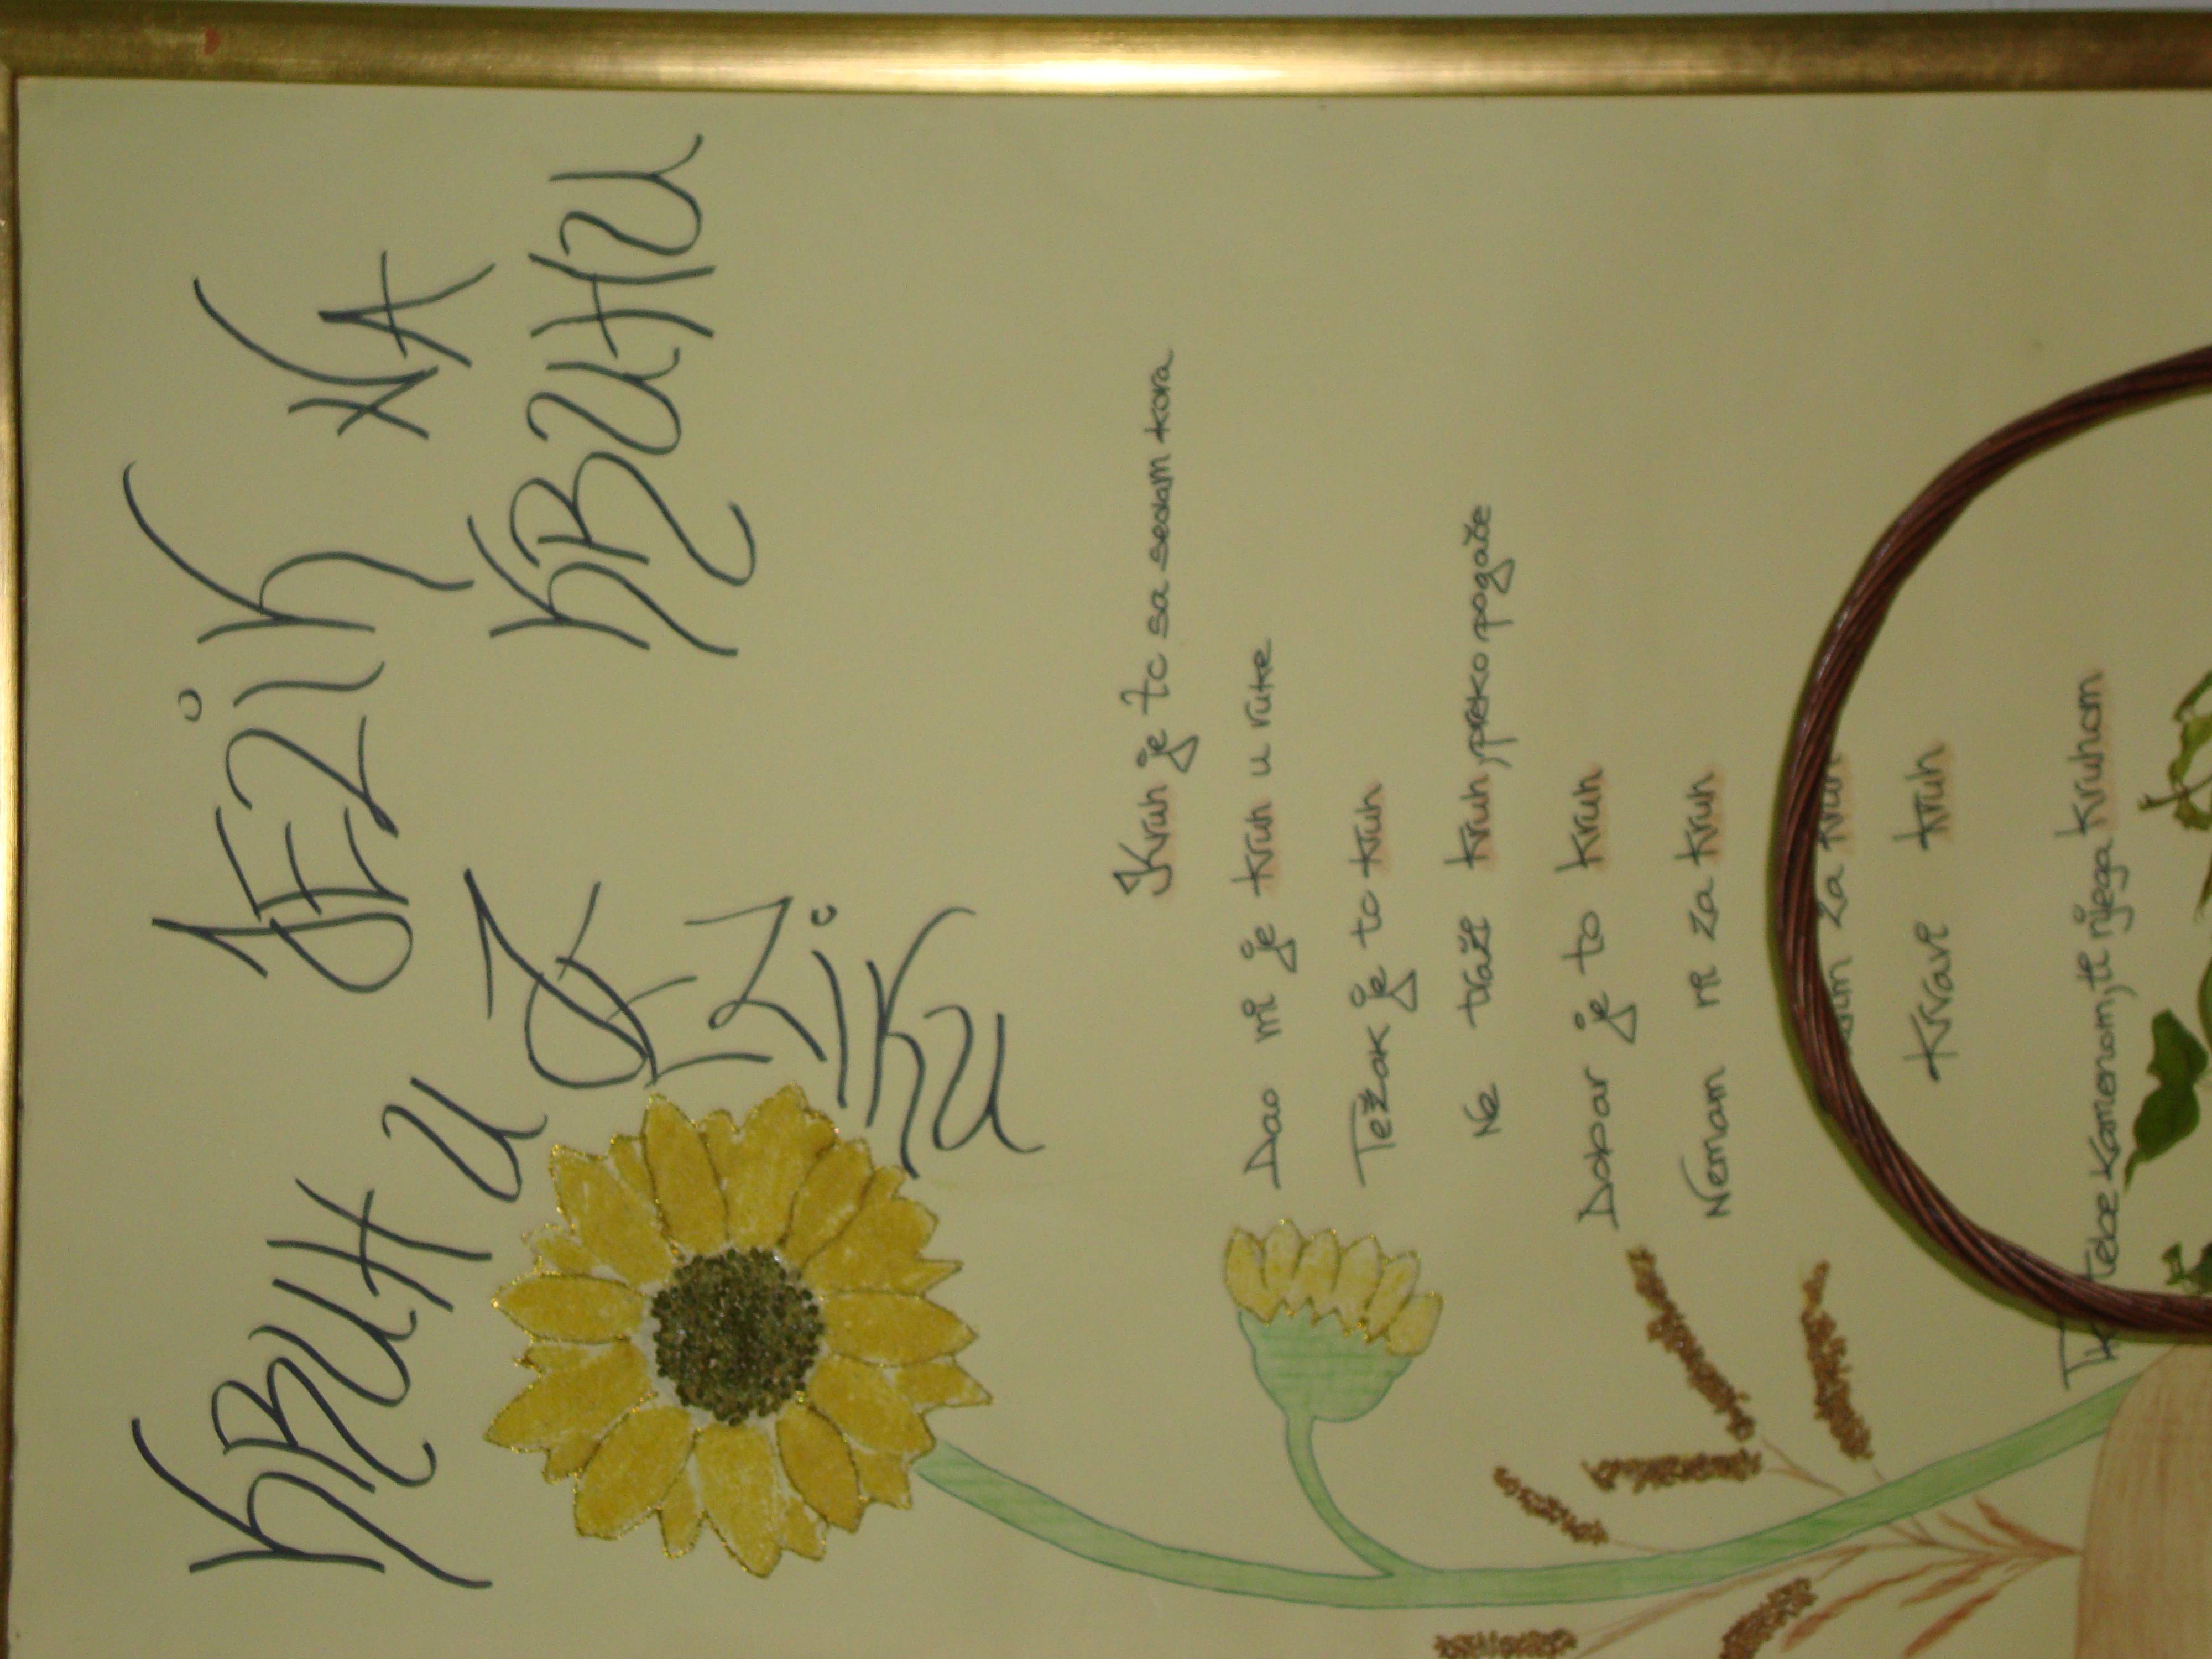 KRUH U JEZIKU
JEZIK NA
KRUHU
Kruh je to sa sedam kora
Dao mi je kruh u ruke
Težak je to kruh
Ne traži kruh, preko pogače
Dobar je to kruh
Nemam ni za kruh
za kruh
kruh
Tko tebe kamenom, ti njega kruhom